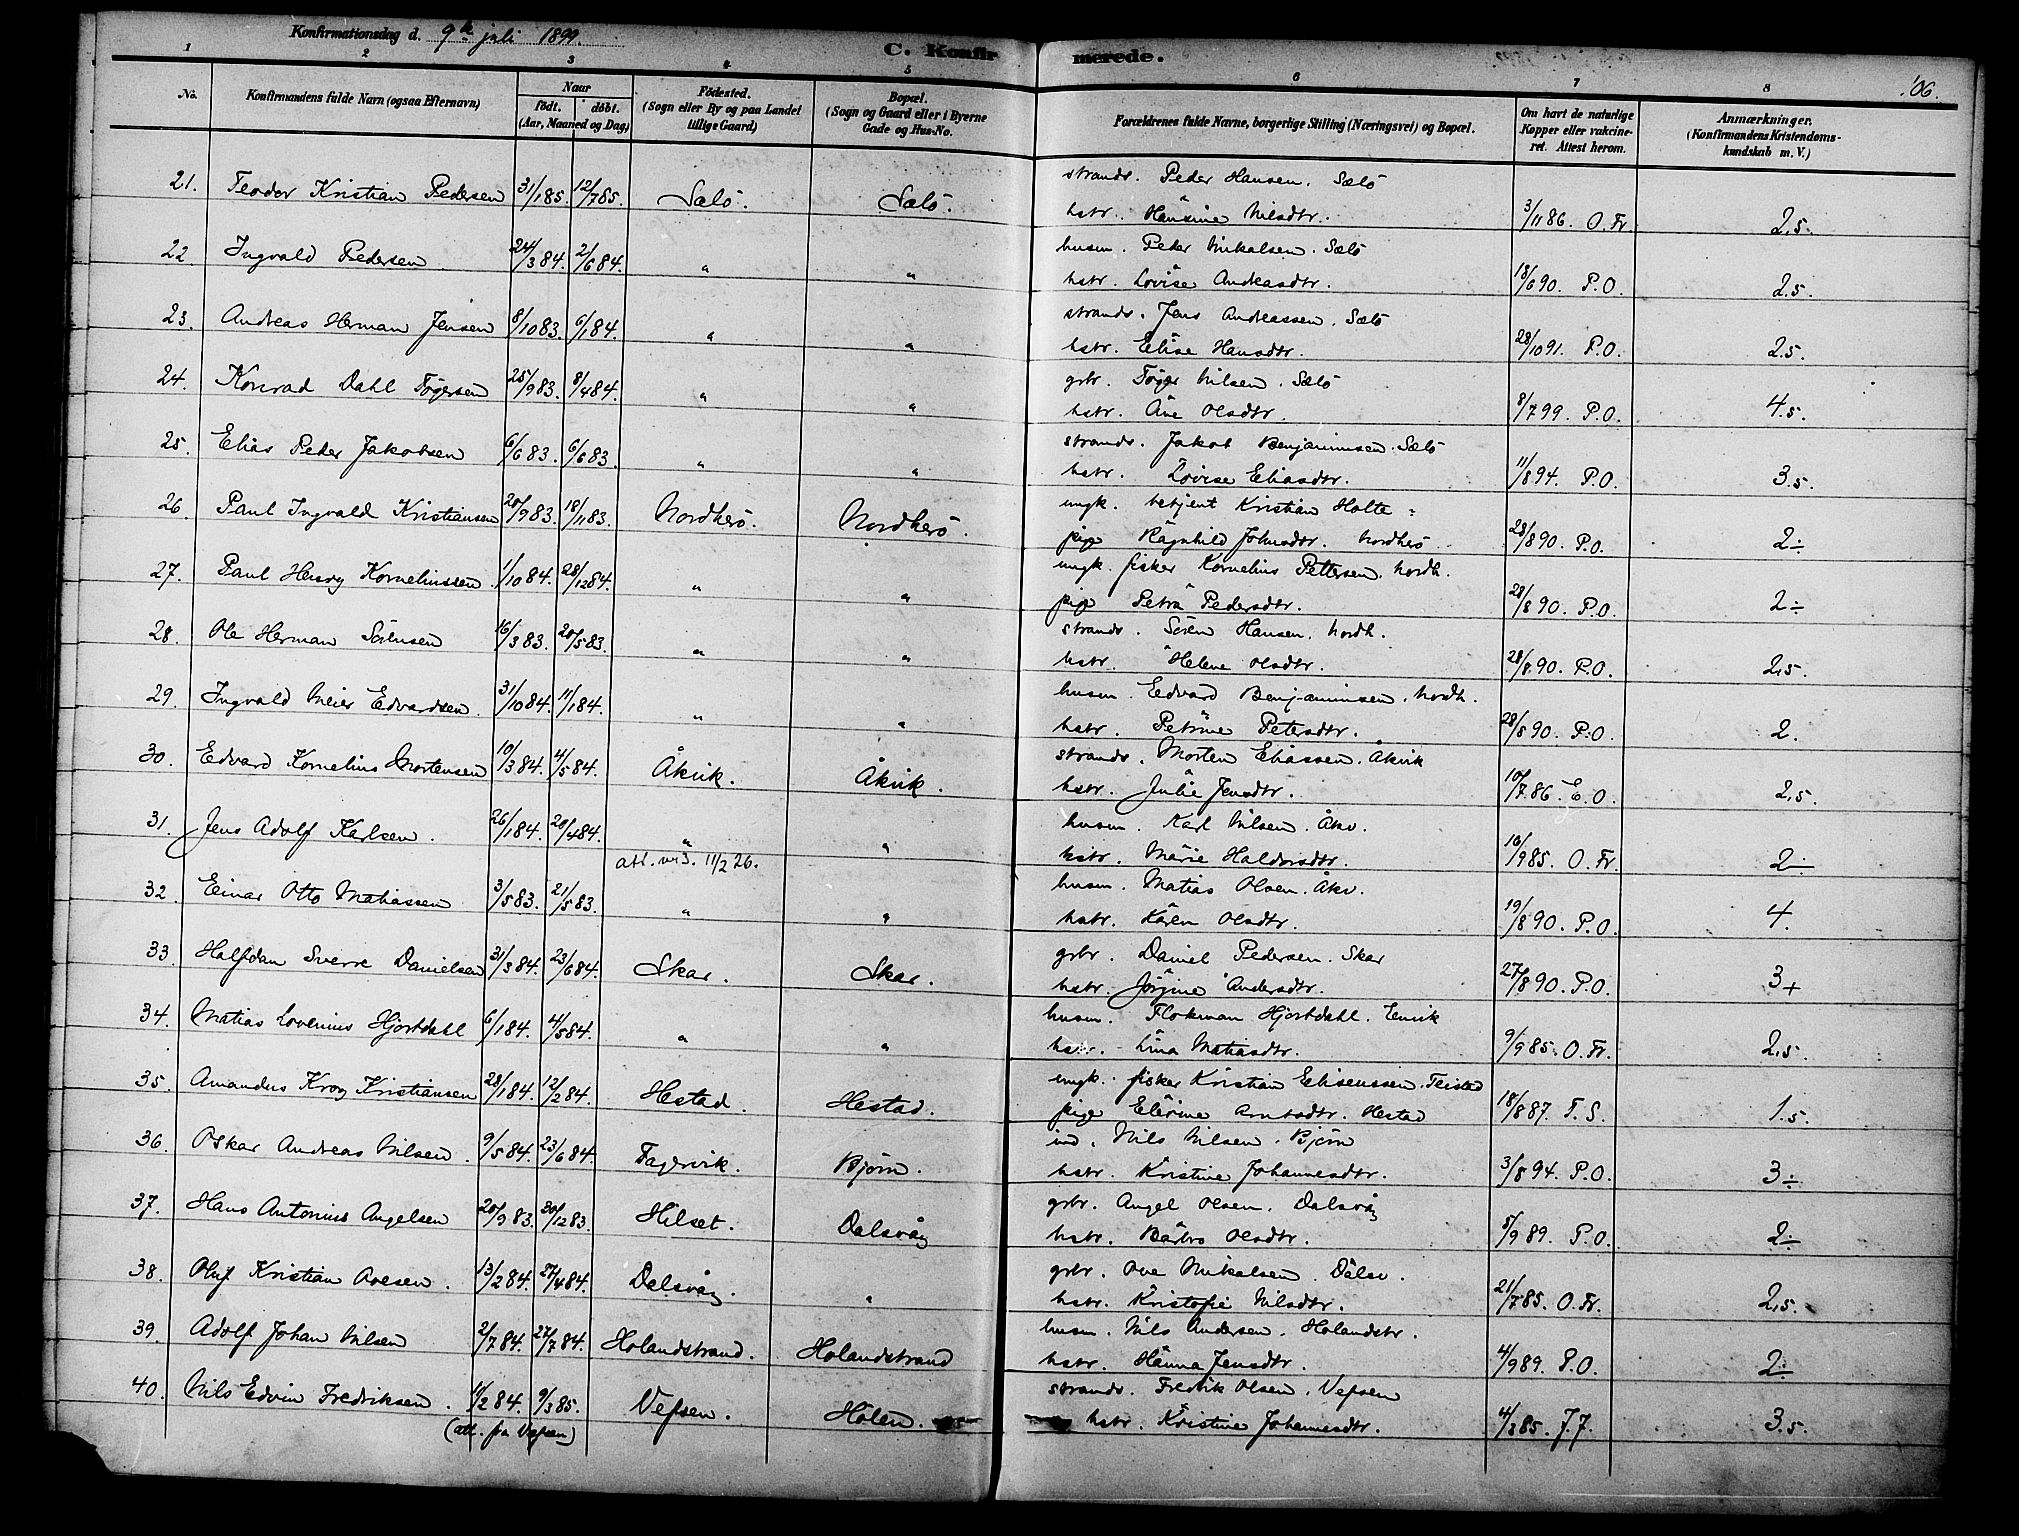 Konfirmationsdag d. 9de juli 1899.
C. Konfirmerede.
106.
1 2 3 4 5 6 7 8
No. Konfirmandens fulde Navn (ogsaa Efternavn) Naar født. døbt. (Aar, Maaned og Dag) Fødested. (Sogn eller By og paa Landet tillige Gaard) Bopæl. (Sogn og Gaard eller i Byerne Gade og Hus-No. Forældrenes fulde Navne, borgerlige Stilling (Næringsvei) og Bopæl. Om havt de naturlige Kopper eller vakcineret. Attest herom. Anmærkninger. (Konfirmandens Kristendomskundskab m. V.)
21. Teodor Kristian Pedersen 31/1 85. 12/7 85. Sælø. Sælø. strands. Peder Hansen. Sælø
hstr. Hansine Nilsdtr. 3/11 86. O. Fr. 2.5.
22. Ingvald Pedersen. 24/3 84. 2/6 84. " " husm. Peder Mikalsen. Sælø
hstr. Lovise Andreasdtr. 18/6 90. P.O. 2.5.
23. Andreas Herman Jensen 8/10 83. 6/1 84. " " strands. Jens Andreassen. Sælø
hstr. Elise Hansdtr. 28/10 91. P.O. 2.5.
24. Konrad Dahl Tøgersen 25/9 83. 8/4 84. " " grbr. Tøger Nilsen. Sælø
hstr. Ane Olsdtr. 8/7 99. P.O. 4.5.
25. Elias Peder Jakobsen 6/6 83. 6/6 83. " " strands. Jakob Benjaminsen. Sælø
hstr. Lovise Eliasdtr. 11/8 94. P.O. 3.5.
26. Paul Ingvald Kristiansen 20/9 83. 18/11 83. Nordherø. Nordherø. ungk. betjent Kristian Holte
pige Ragnhild Johnsdtr. Nordherø 28/8 90. P.O. 2÷
27. Paul Hersog Kornelinssen. 1/10 84. 28/12 84. " " ungk. fisker Kornelius Pettersen. Nordh.
pige Petra Pedersdtr. 28/8 90. P.O. 2÷
28. Ole Herman Sørensen 16/3 83. 20/5 83. " " strands. Søren Hansen. Nordh.
hstr. Helene Olsdtr. 28/8 90. P.O. 2.5
29. Ingvald Meier Edvardsen. 31/10 84. 11/1 84. " " husm. Edvard Benjaminsen. Nordh.
hstr. Petrine Petersdtr. 28/8 90. P.O. 2.
30. Edvard Kornelius Mortensen 10/3 84. 4/5 84. Åkvik. Åkvik. strands. Morten Eliassen. Åkvik
hstr. Julie Jensdtr. 10/7 86. E.O. 2.5.
31. Jens Adolf Karlsen. 26/1 84. 20/4 84. " " husm. Karl Nilsen. Åkv.
att. 11/2 26. hstr. Marie Haldorsdtr. 16/9 85. O. Fr. 2÷
32. Einar Otto Matiassen 3/5 83. 21/5 83. " " husm. Matias Olsen. Åkv.
hstr. Karen Olsdtr. 19/8 90. P.O. 4.
33. Halfdan Sverre Danielsen 31/3 84. 23/6 84. Skar. Skar. grbr. Daniel Pedersen. Skar
hstr. Jørgine Andersdtr. 27/8 90. P.O. 3+
34. Matias Lovenius Hjortdahl 6/1 84. 4/5 84. " " husm. Flokman Hjortdahl.
hstr. Lina Matiasdtr. 9/9 85. O. Fr. 2.5.
35. Amandus Krog Kristiansen 28/1 84. 12/2 84. Hestad. Hestad. ungk. fisker Kristian Elisenssen. Teistad
pige Elevine Arntsdtr. Hestad 18/8 87. T.S. 1.5
36. Oskar Andreas Nilsen. 9/5 84. 23/6 84. Fagervik. Bjørn. ind. Nils Nilsen. Bjørn
hstr. Kristine Johannesdtr. 3/8 94. P.O. 3÷
37. Hans Antonius Angelsen 20/9 83. 30/12 83. Hilset. Dalsvåg grbr. Angel Olsen. Dalsvåg
hstr. Barbro Olsdtr. 5/9 89. P.O. 2÷
38. Oluf Kristian Ovesen. 13/2 84. 27/4 84. Dalsvåg. " grbr. Ove Mikalsen. Dalsv.
hstr. Kristofie Nilsdtr. 21/7 85. O. Fr. 2.5.
39. Adolf Johan Nilsen 2/7 84. 27/7 84. Holandstrand. Holandstrand husm. Nils Andersen. Holandstr.
hstr. Hanna Jensdtr. 4/9 89. P.O. 2÷
40. Nils Edvin Fredriksen. 11/2 84. 9/3 85. Vefsen. Holen. strands. Fredrik Olsen. Vefsen
(att. fra Vefsen) hstr. Kristine Johannesdtr. 4/3 85. J.J. 3.5.